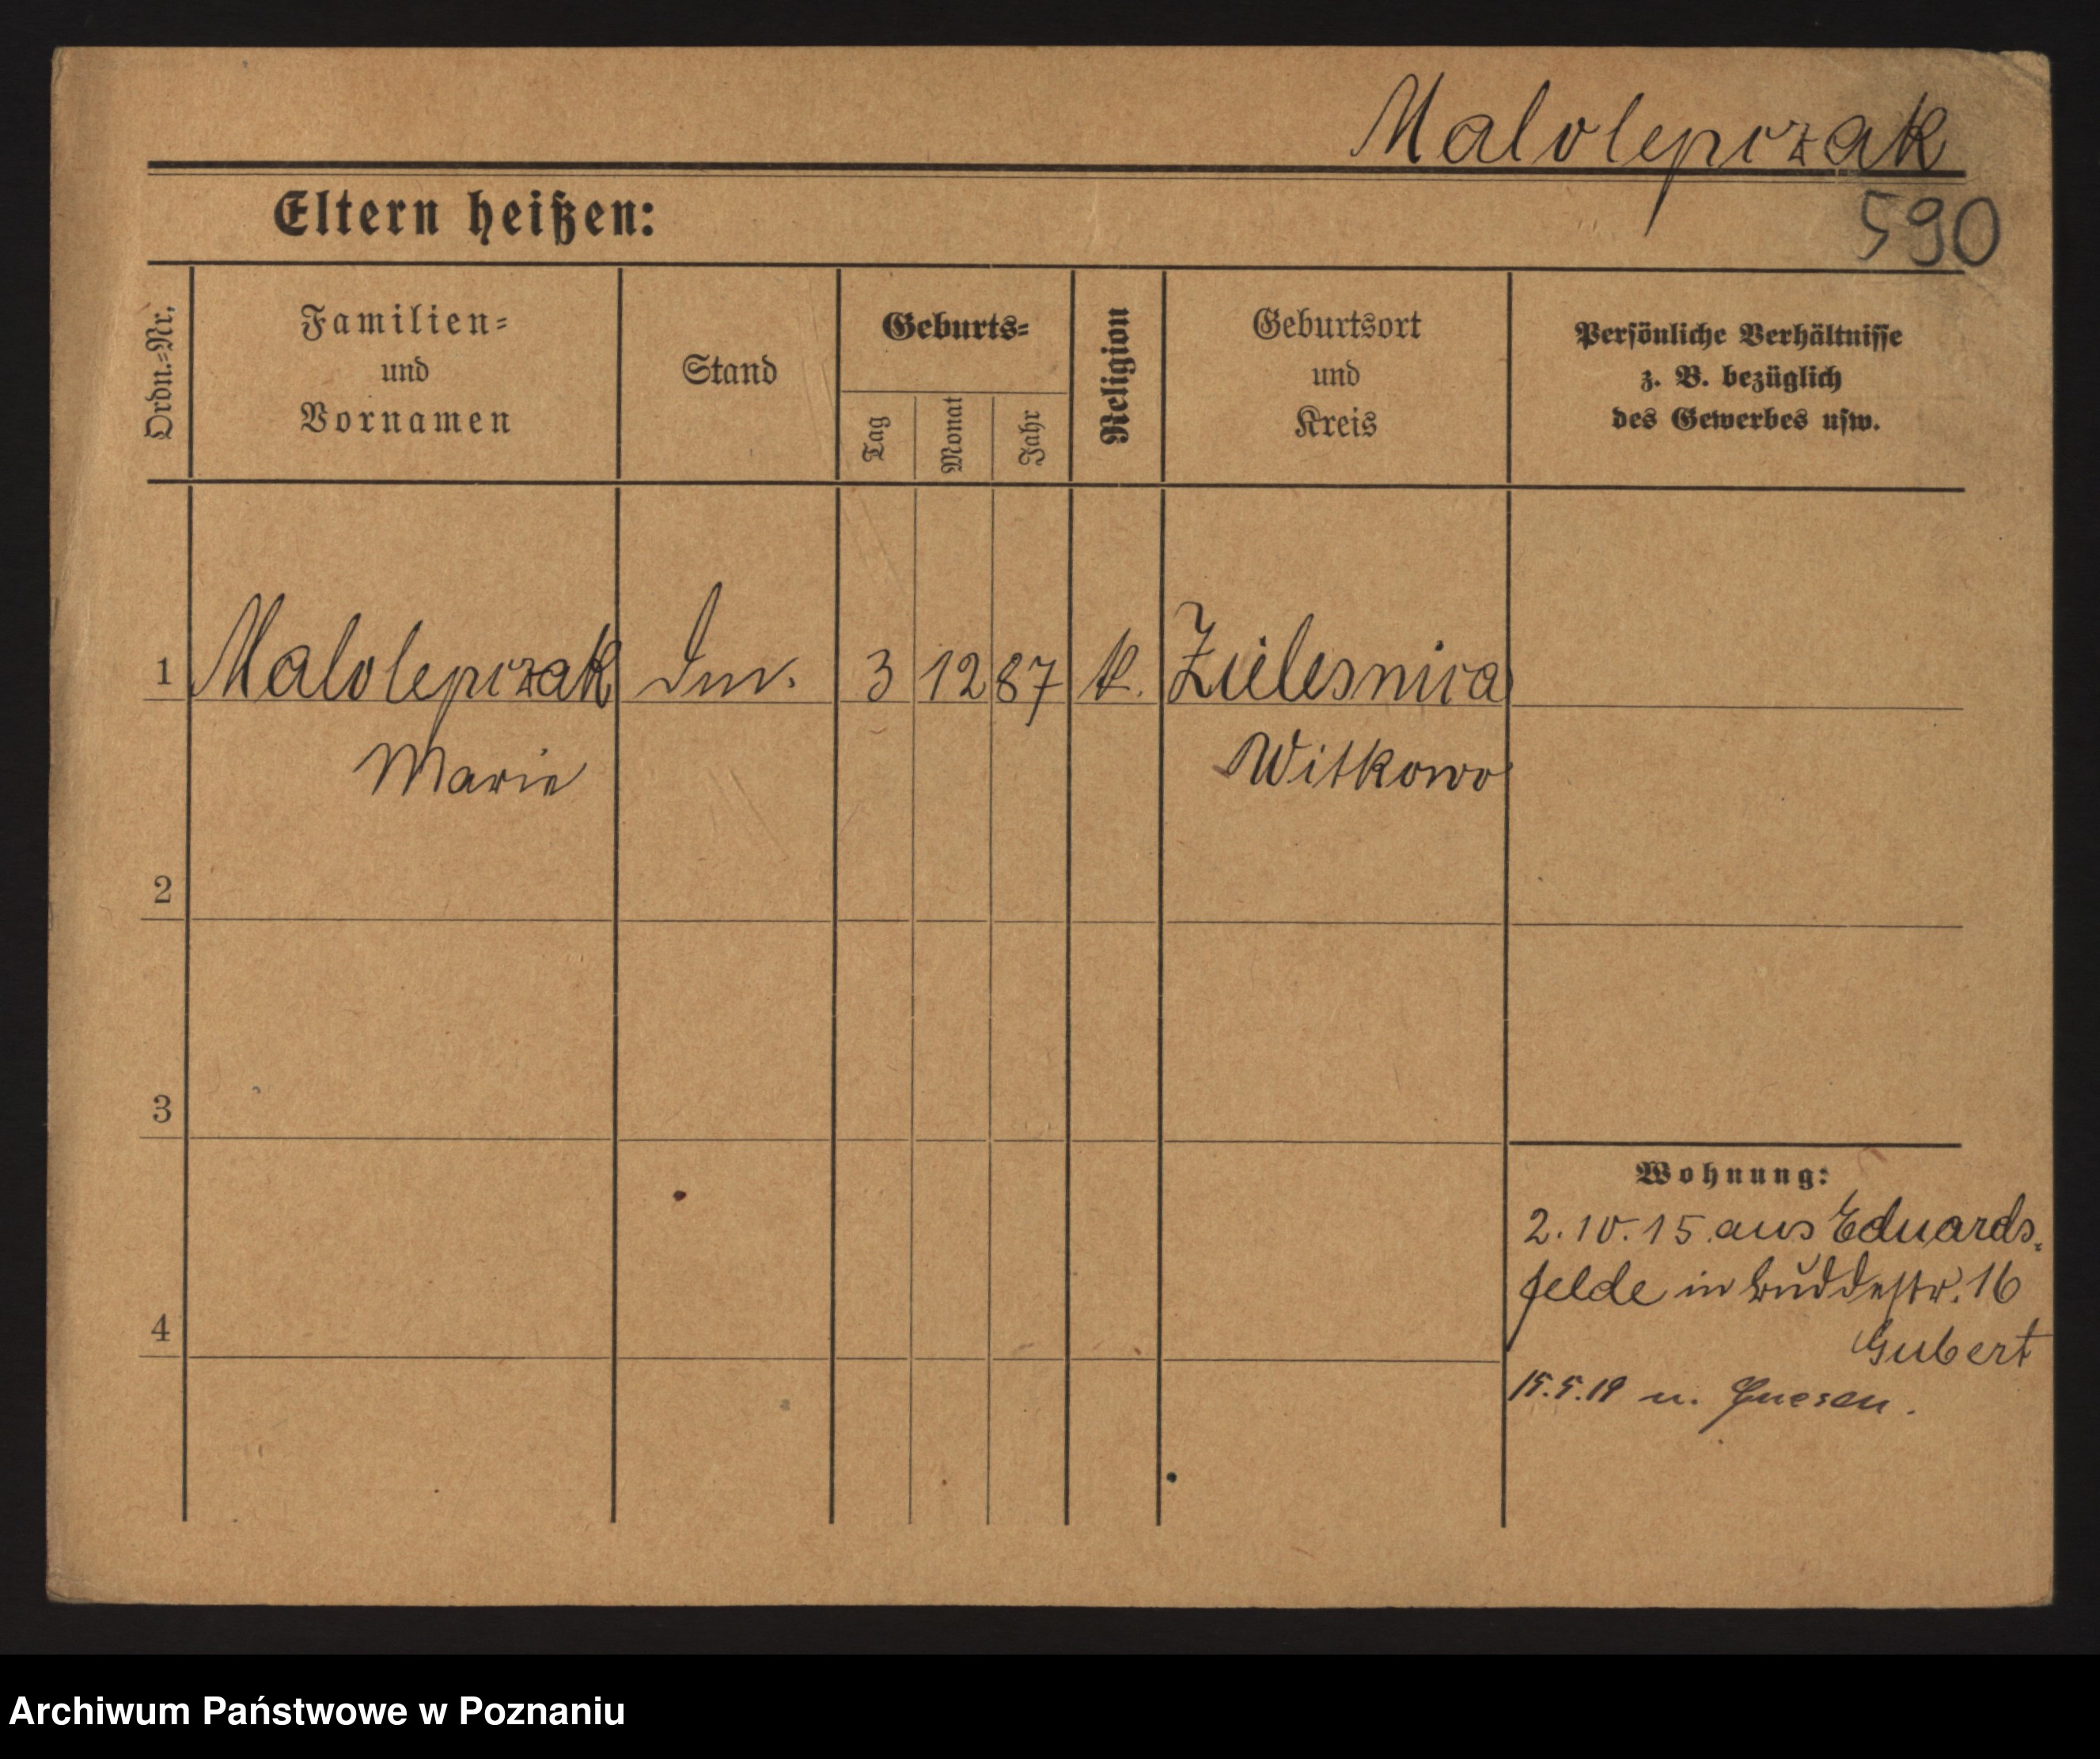 Malolepczak
Eltern heißen:
590
Ordn.=Nr.
Familien=
und
Vornamen
Stand
Geburts=
Tag
Monat
Jahr
Religion
Geburtsort
und
Kreis
Persönliche Verhältnisse
z. B. bezüglich
des Gewerbes usw.
1 Malolepczak 3 12 87 k. Zielesnica
Marie Witkowo
2
3
4
Wohnung:
2.10.15 aus Eduards=
felde in Buddestr. 16
Gubert
15.5.19 n. Gnesen.
Archiwum Państwowe w Poznaniu